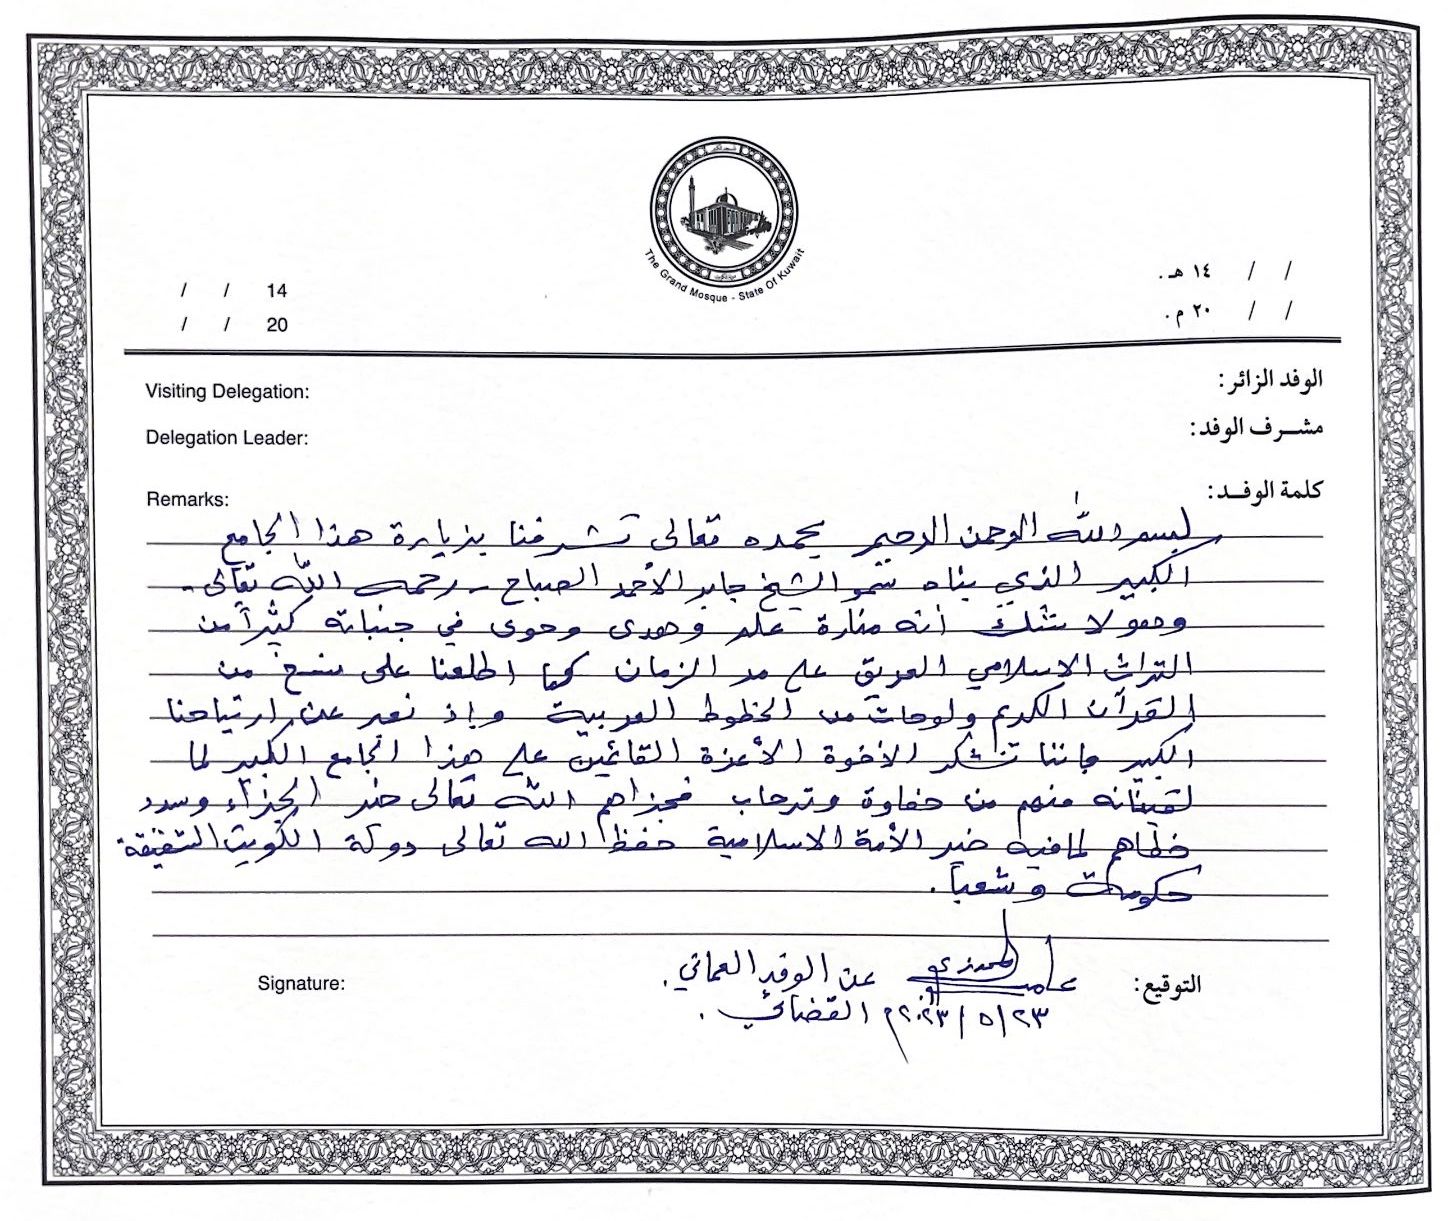 The Grand Mosque - State Of Kuwait
/ / ١٤ هـ.
/ / ٢٠ م.
/ / 14
/ / 20
الوفد الزائر:
Visiting Delegation:
مشرف الوفد:
Delegation Leader:
كلمة الوفد:
Remarks:
بسم الله الرحمن الرحيم بحمده تعالى تشرفنا بزيارة هذا الجامع
الكبير الذي بناه سمو الشيخ جابر الأحمد الصباح - رحمه الله تعالى -
وهو لا شك أنه منارة علم وهدى وحوى في جنباته كثيراً من
التراث الاسلامي العريق على مد الزمان كما اطلعنا على نسخ من
القرآن الكريم ولوحات من الخطوط العربية وإذ نعبر عن ارتياحنا
الكبير فإننا نشكر الاخوة الأعزة القائمين على هذا الجامع الكبير لما
لقيناه منهم من حفاوة وترحاب فجزاهم الله تعالى خير الجزاء وسدد
خطاهم لما فيه خير الأمة الاسلامية حفظ الله تعالى دولة الكويت الشقيقة
حكومة وشعباً.
التوقيع:
عن الوفد العماني
القضائي.
٢٣/٥/٢٠٢٣م
Signature: